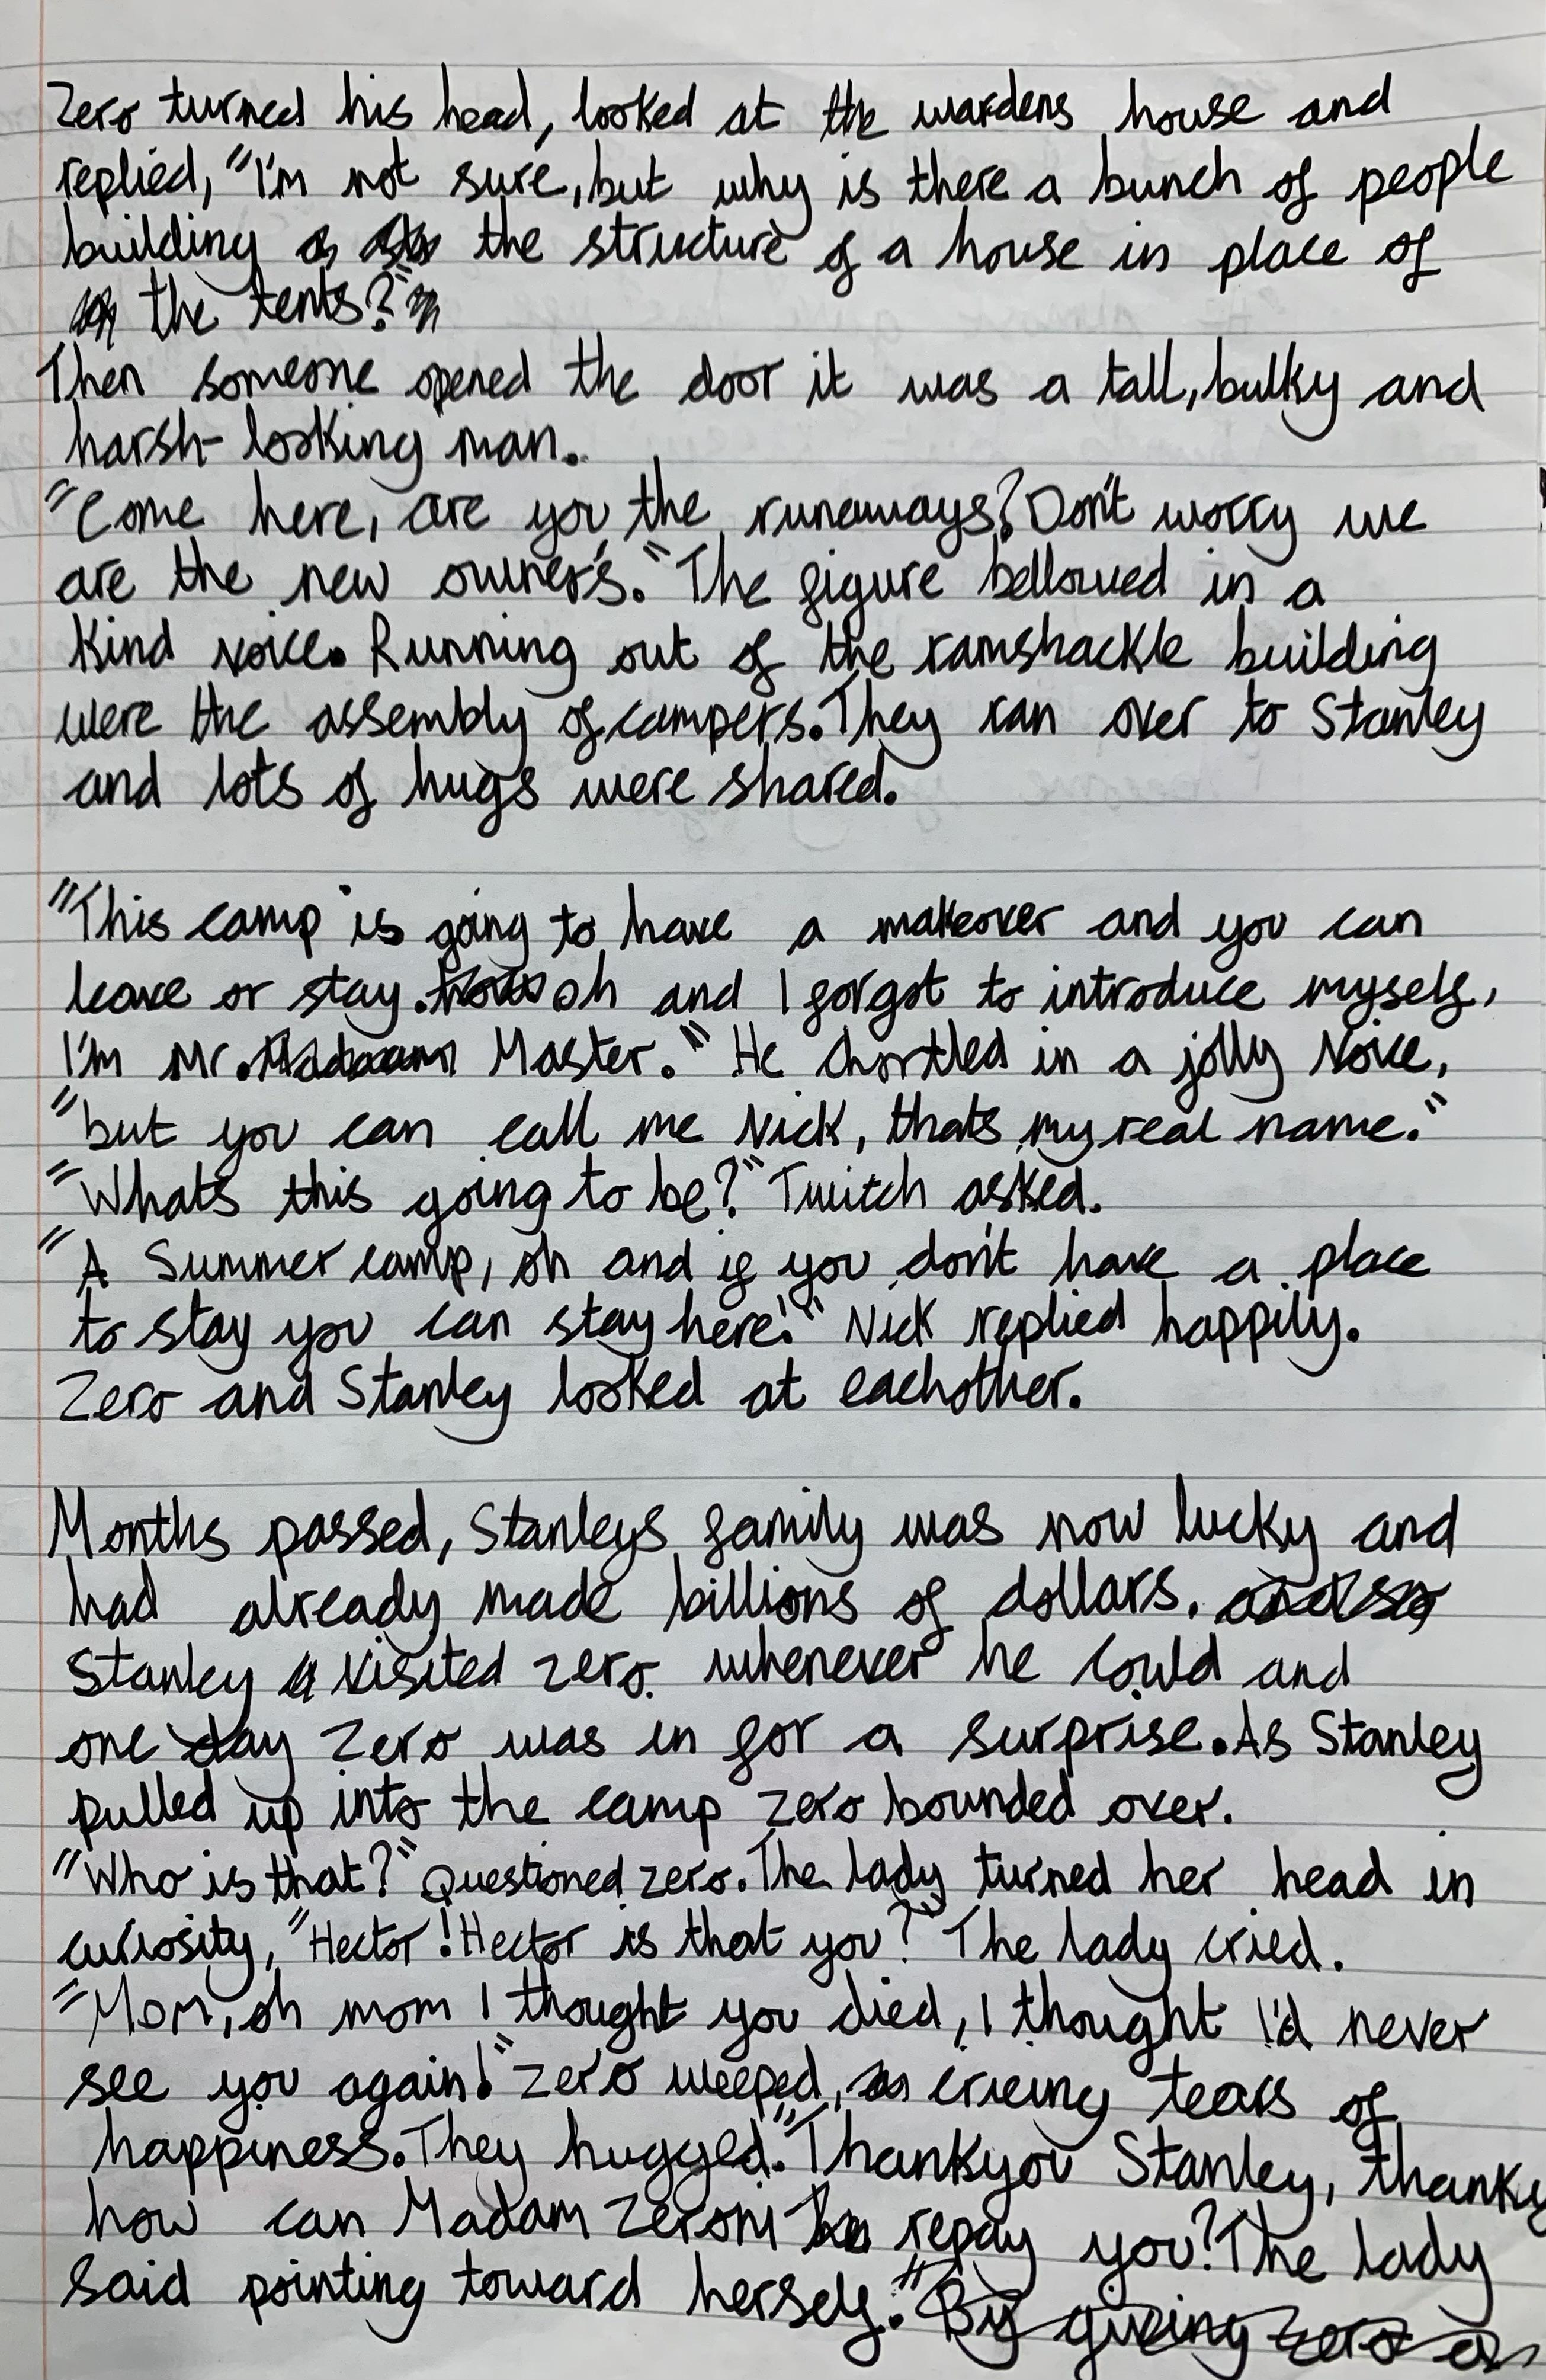 Zero turned his head, looked at the wardens house and
replied, "I'm not sure, but why is there a bunch of people
building the structure of a house in place of
the tents?"
Then someone opened the door it was a tall, bulky and
harsh-looking man.
"Come here, are you the runaways? Don't worry we
are the new owner's." The figure bellowed in a
kind voice. Running out of the ramshackle building
were the assembly of campers. They ran over to Stanley
and lots of hugs were shared.
"This camp is going to have a makeover and you can
leave or stay. oh and I forgot to introduce myself,
I'm Mr. Master." He chortled in a jolly voice,
"but you can call me Nick, thats my real name."
"Whats this going to be?" Twitch asked.
"A Summer camp, oh and if you don't have a place
to stay you can stay here!" Nick replied happily.
Zero and Stanley looked at eachother.
Months passed, Stanleys family was now lucky and
had already made billions of dollars.
Stanley visited zero whenever he could and
one day Zero was in for a surprise. As Stanley
pulled up into the camp zero bounded over.
"Who is that?" Questioned zero. The lady turned her head in
curiosity, "Hector! Hector is that you?" The lady cried.
"Mom, oh mom I thought you died, I thought I'd never
see you again!" zero weeped, crieing tears of
happiness. They hugged. "Thankyou Stanley, thanky
how can Madam Zeroni repay you? The lady
said pointing toward herself. "By giving zero a